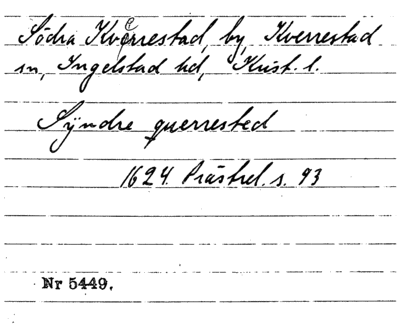 Södra Kverrestad, by, Kverrestad
sn, Ingelstad hd, Krist. l.
Syndre querrested
1624. Prästrel. s. 93
Nr 5449.